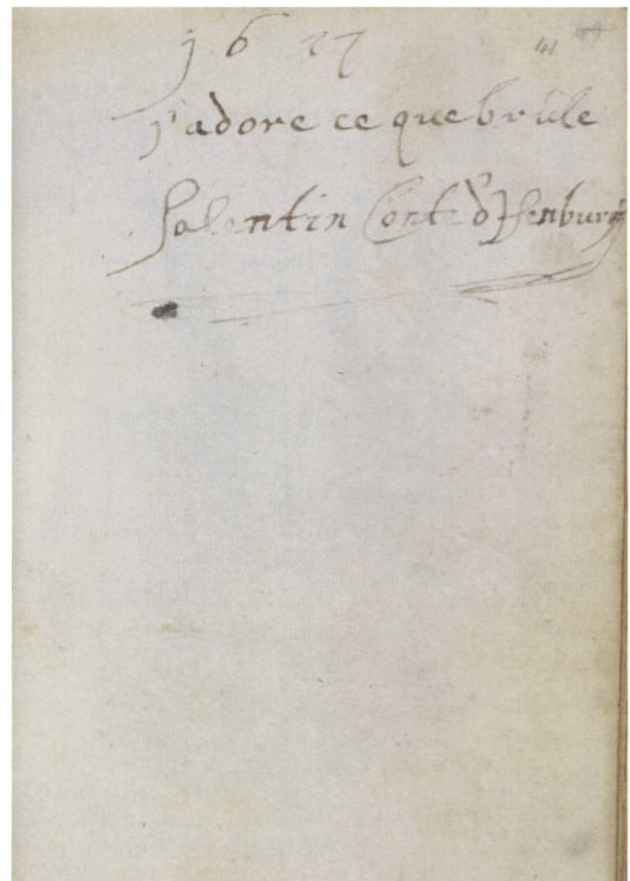 16 77
41
j'adore ce que brûle
Salentin Conte d'Isenburg